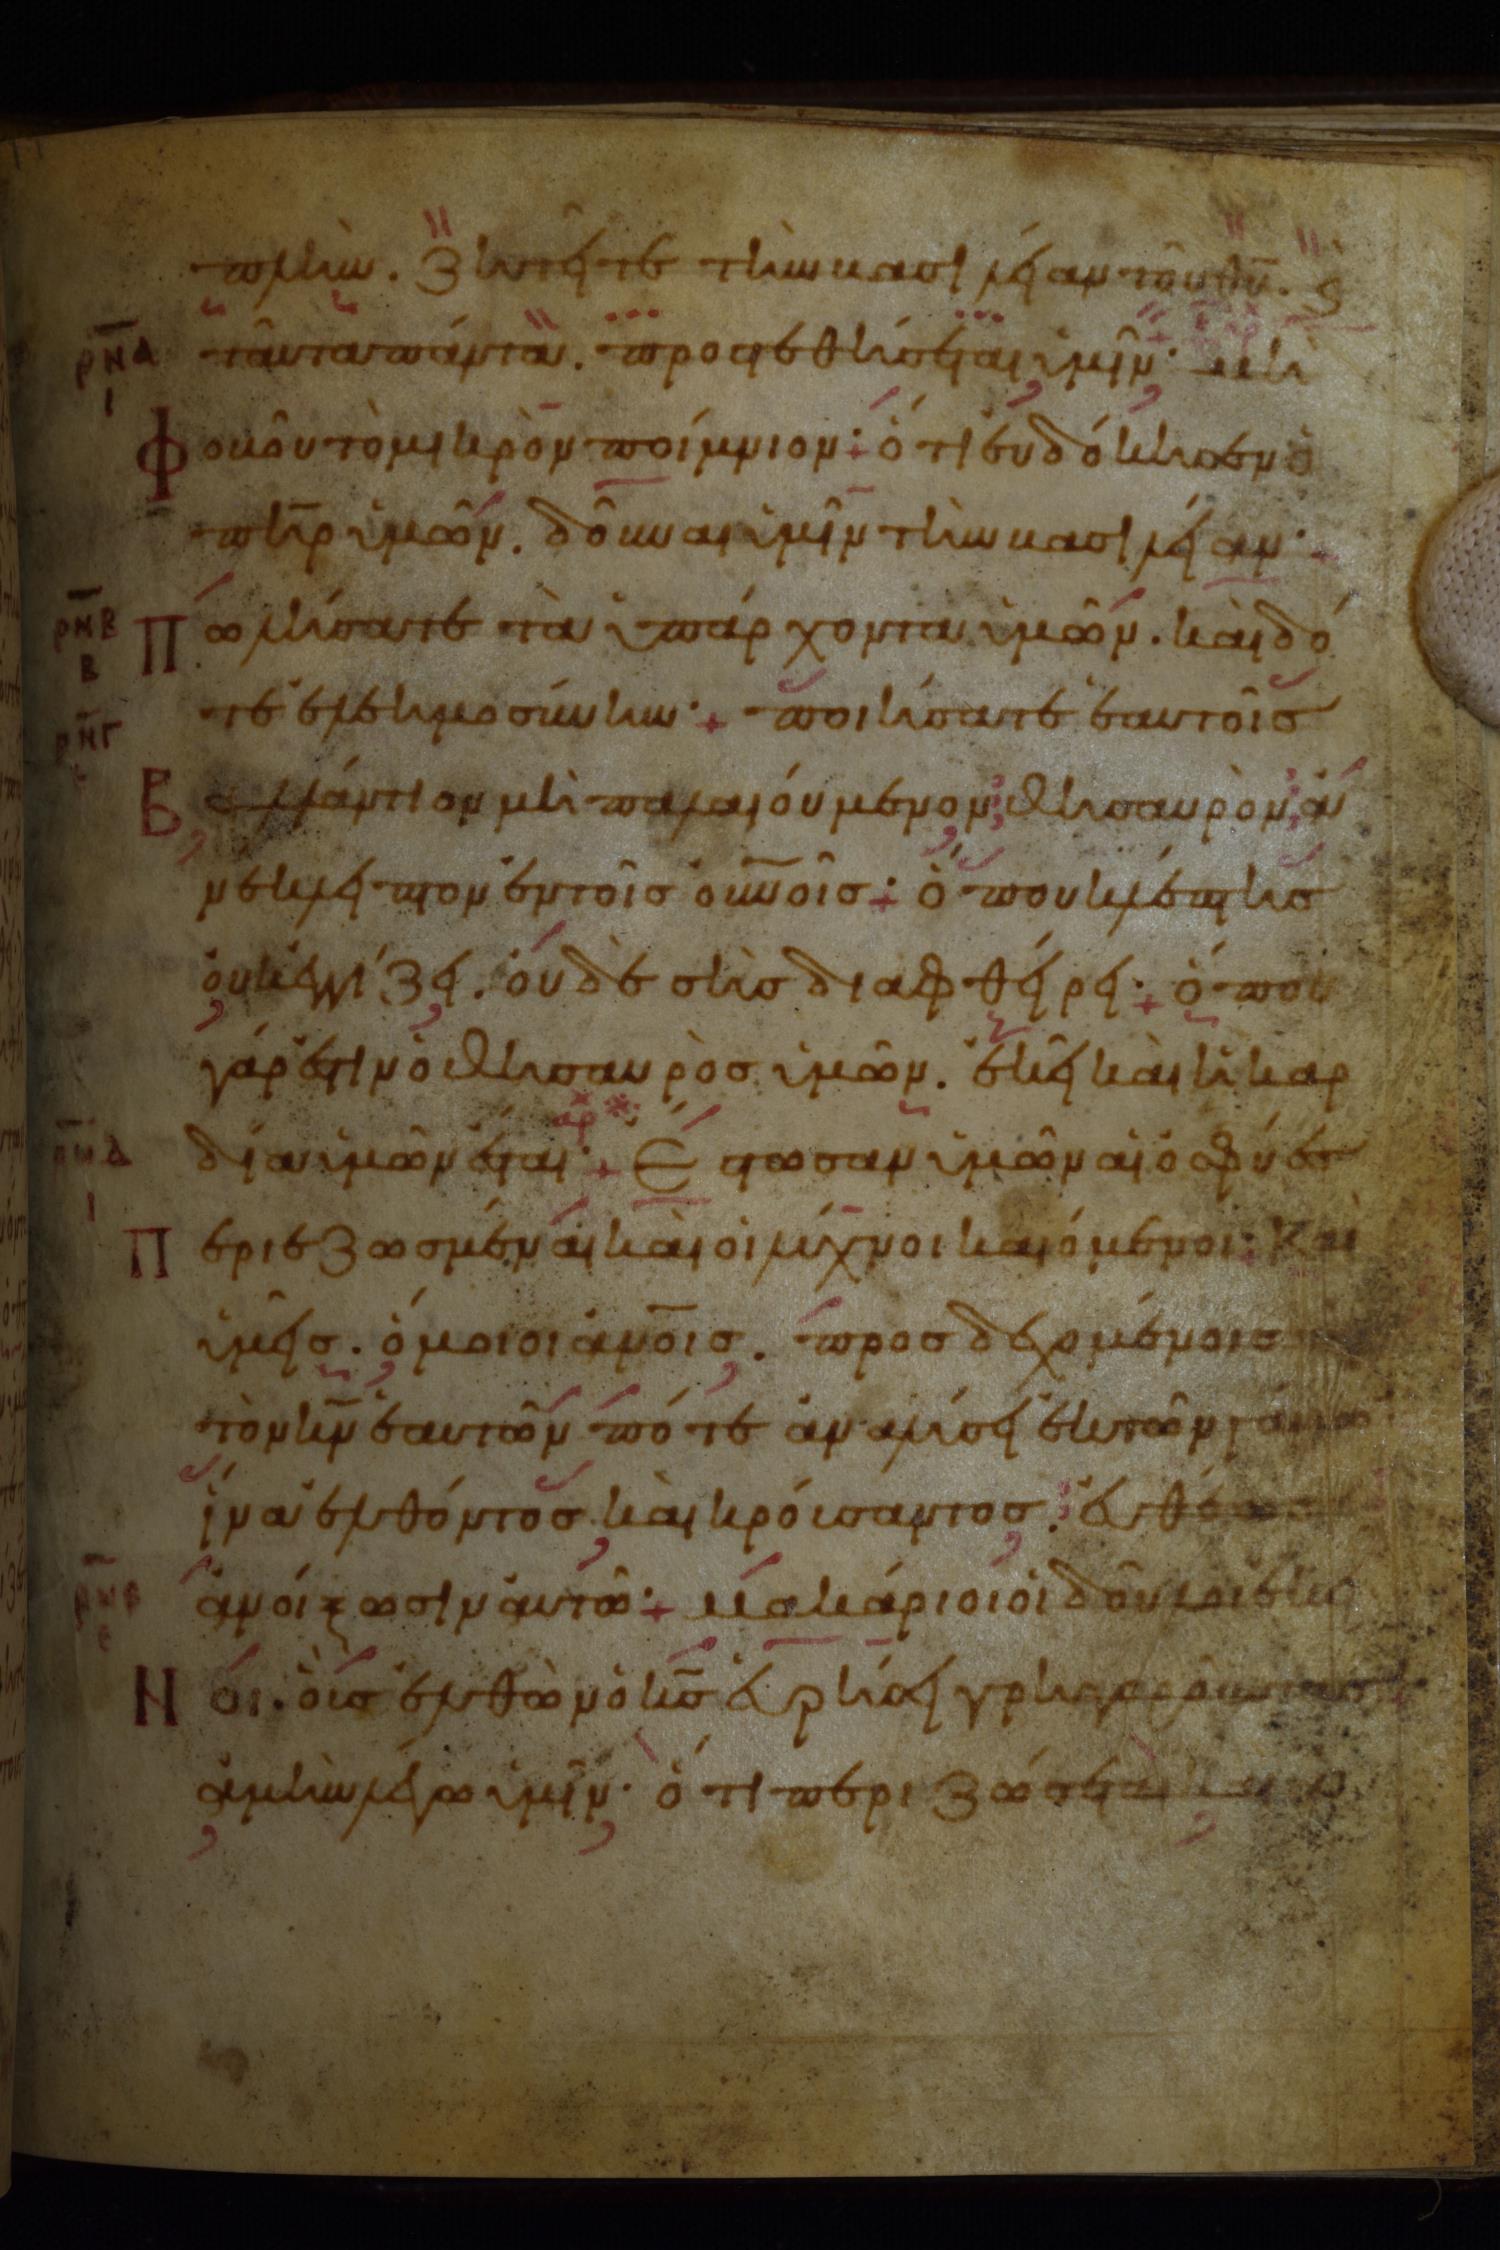 πλὴν. ζητεῖτε τὴν βασιλείαν τοῦ θυ̅. κ
ρ̅ν̅α ταῦτα πάντα. προστεθήσεται ὑμῖν· μὴ
ι
Φοβοῦ τὸ μικρὸν ποίμνιον· ὅτι εὐδόκησεν ὁ
πη̅ρ ὑμῶν. δοῦναι ὑμῖν τὴν βασιλείαν·
ρ̅ν̅β Πωλήσατε τὰ ὑπάρχοντα ὑμῶν. καὶ δό
β
ρ̅ν̅γ τε ἐλεημοσύνην· ποιήσατε ἑαυτοῖς
Βαλλάντιον μὴ παλαιούμενον θησαυρὸν ἀ
νέκλειπτον ἐν τοῖς οὐνοῖς· ὅπου κλέπτης
οὐκ ἐγγίζει. οὐδὲ σὴς διαφθείρει· ὅπου
γάρ ἐστιν ὁ θησαυρὸς ὑμῶν. ἐκεῖ καὶ ἡ καρ
ρ̅ν̅δ δία ὑμῶν ἔσται· αρ Ἔστωσαν ὑμῶν αἱ ὀσφύες
ι
Περιεζωσμέναι καὶ οἱ λύχνοι καιόμενοι· Καὶ
ὑμεῖς. ὅμοιοι ἀνοις. προσδεχομένοις
τὸν κν̅ ἑαυτῶν πότε ἀναλύσει ἐκ τῶν γάμων
ἵνα ἐλθόντος καὶ κρούσαντος. εὐθέως
ρ̅ν̅ε ἀνοίξωσιν αὐτῶ· μακάριοι οἱ δοῦλοι ἐκεῖ
ε
Νοι. οἷς ἐλθὼν ὁ κς̅ εὑρήσει γρηγοροῦντας
ἀμὴν λέγω ὑμῖν· ὅτι περιζώσεται